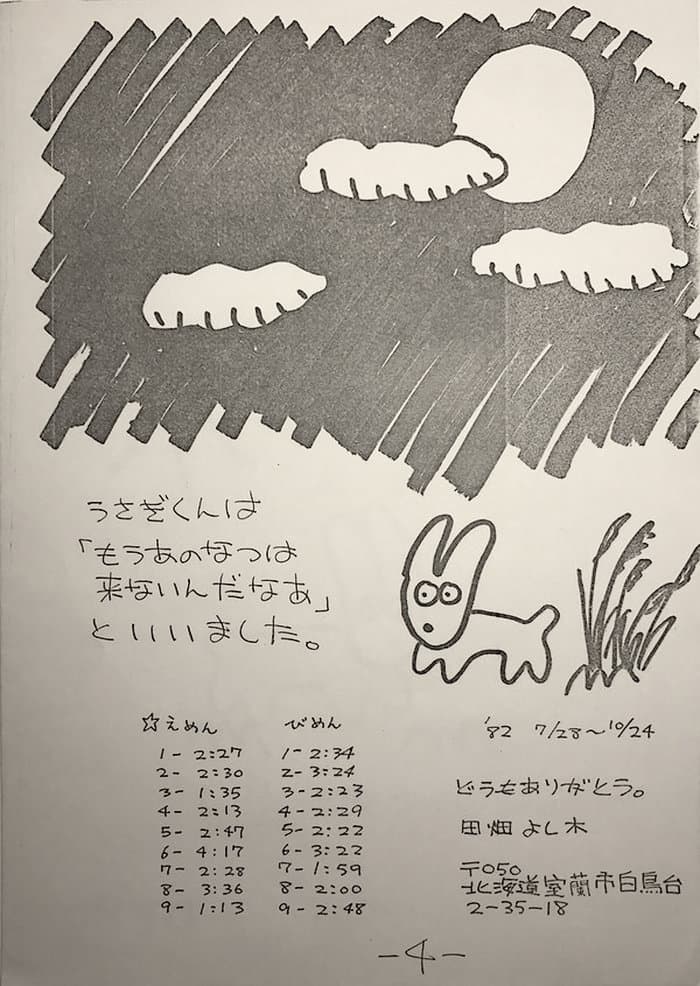 うさぎくんは
「もうあのなつは
来ないんだなあ」
といいました。
☆えめん
1- 2:27
2- 2:30
3- 1:35
4- 2:13
5- 2:47
6- 4:17
7- 2:28
8- 3:36
9- 1:13
びめん
1- 2:34
2- 3:24
3- 2:23
4- 2:29
5- 2:22
6- 3:22
7- 1:59
8- 2:00
9- 2:48
'82 7/28〜10/24
どうもありがとう。
田畑よし木
〒050
北海道室蘭市白鳥台
2-35-18
-4-